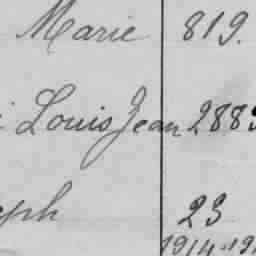 Marie 819.
Louis Jean 2883
eph 23
1914-19